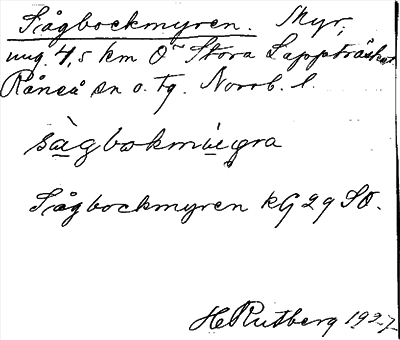 Sågbockmyren. Myr,
ung. 4,5 km O Stora Lappträsket
Råneå sn o. tg. Norrb. l.
sàgbokmi̬egra
Sågbockmyren kG 29 SO.
H Rutberg 1927